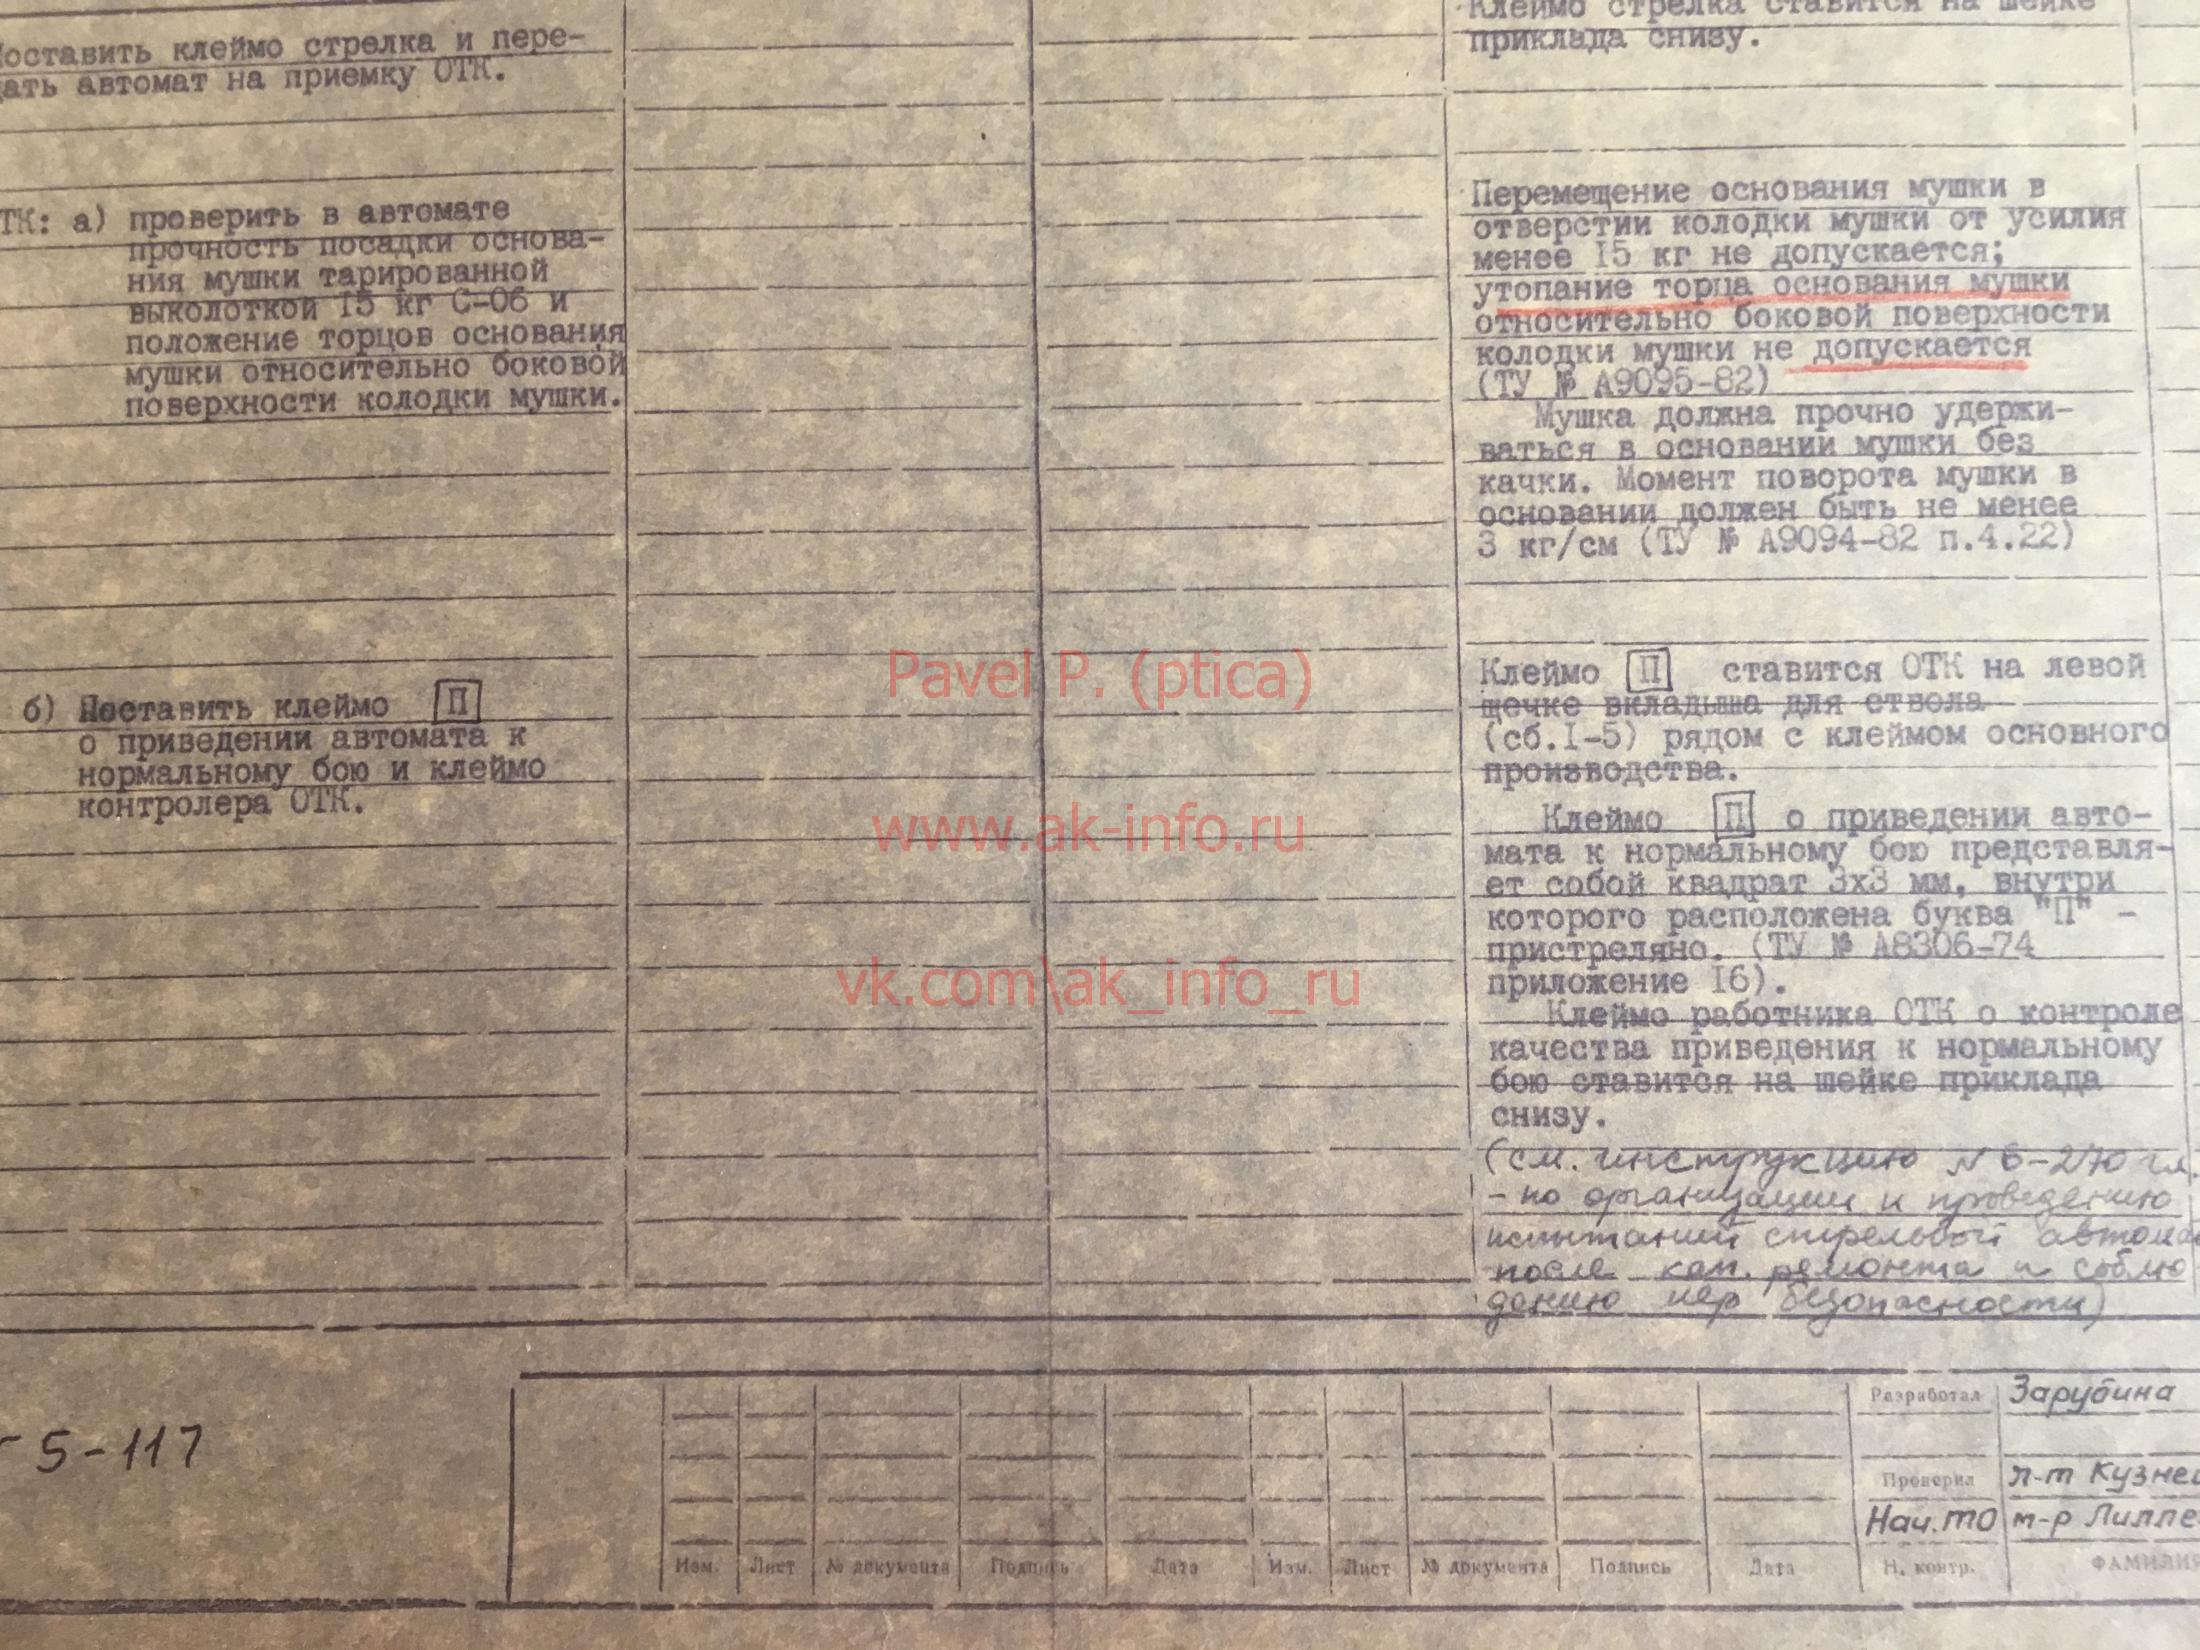 Поставить клеймо стрелка и пере-
дать автомат на приемку ОТК.
ТК: а) проверить в автомате
прочность посадки основа-
ния мушки тарированной
выколоткой 15 кг С-06 и
положение торцов основания
мушки относительно боковой
поверхности колодки мушки.
б) Поставить клеймо П
о приведении автомата к
нормальному бою и клеймо
контролера ОТК.
Клеймо стрелка ставится на шейке
приклада снизу.
Перемещение основания мушки в
отверстии колодки мушки от усилия
менее 15 кг не допускается;
утопание торца основания мушки
относительно боковой поверхности
колодки мушки не допускается
(ТУ № А9095-82)
Мушка должна прочно удержи-
ваться в основании мушки без
качки. Момент поворота мушки в
основании должен быть не менее
3 кг/см (ТУ № А9094-82 п.4.22)
Клеймо П ставится ОТК на левой
щечке вкладыша для ствола
(сб.1-5) рядом с клеймом основного
производства.
Клеймо П о приведении авто-
мата к нормальному бою представля-
ет собой квадрат 3х3 мм, внутри
которого расположена буква "П" -
пристреляно. (ТУ № А8306-74
приложение 16).
Клеймо работника ОТК о контроле
качества приведения к нормальному
бою ставится на шейке приклада
снизу.
(см. инструкцию №
- по организации и проведению
испытаний стрельбой
после кап. ремонта и соблю
дению мер безопасности)
Pavel P. (ptica)
www.ak-info.ru
vk.com\ak_info_ru
5-117
Изм. Лист № документа Подпись Дата Изм. Лист № документа Подпись Дата
Разработал Зарубина
Проверил л-т
Нач. ТО м-р
Н. контр. ФАМИЛИЯ